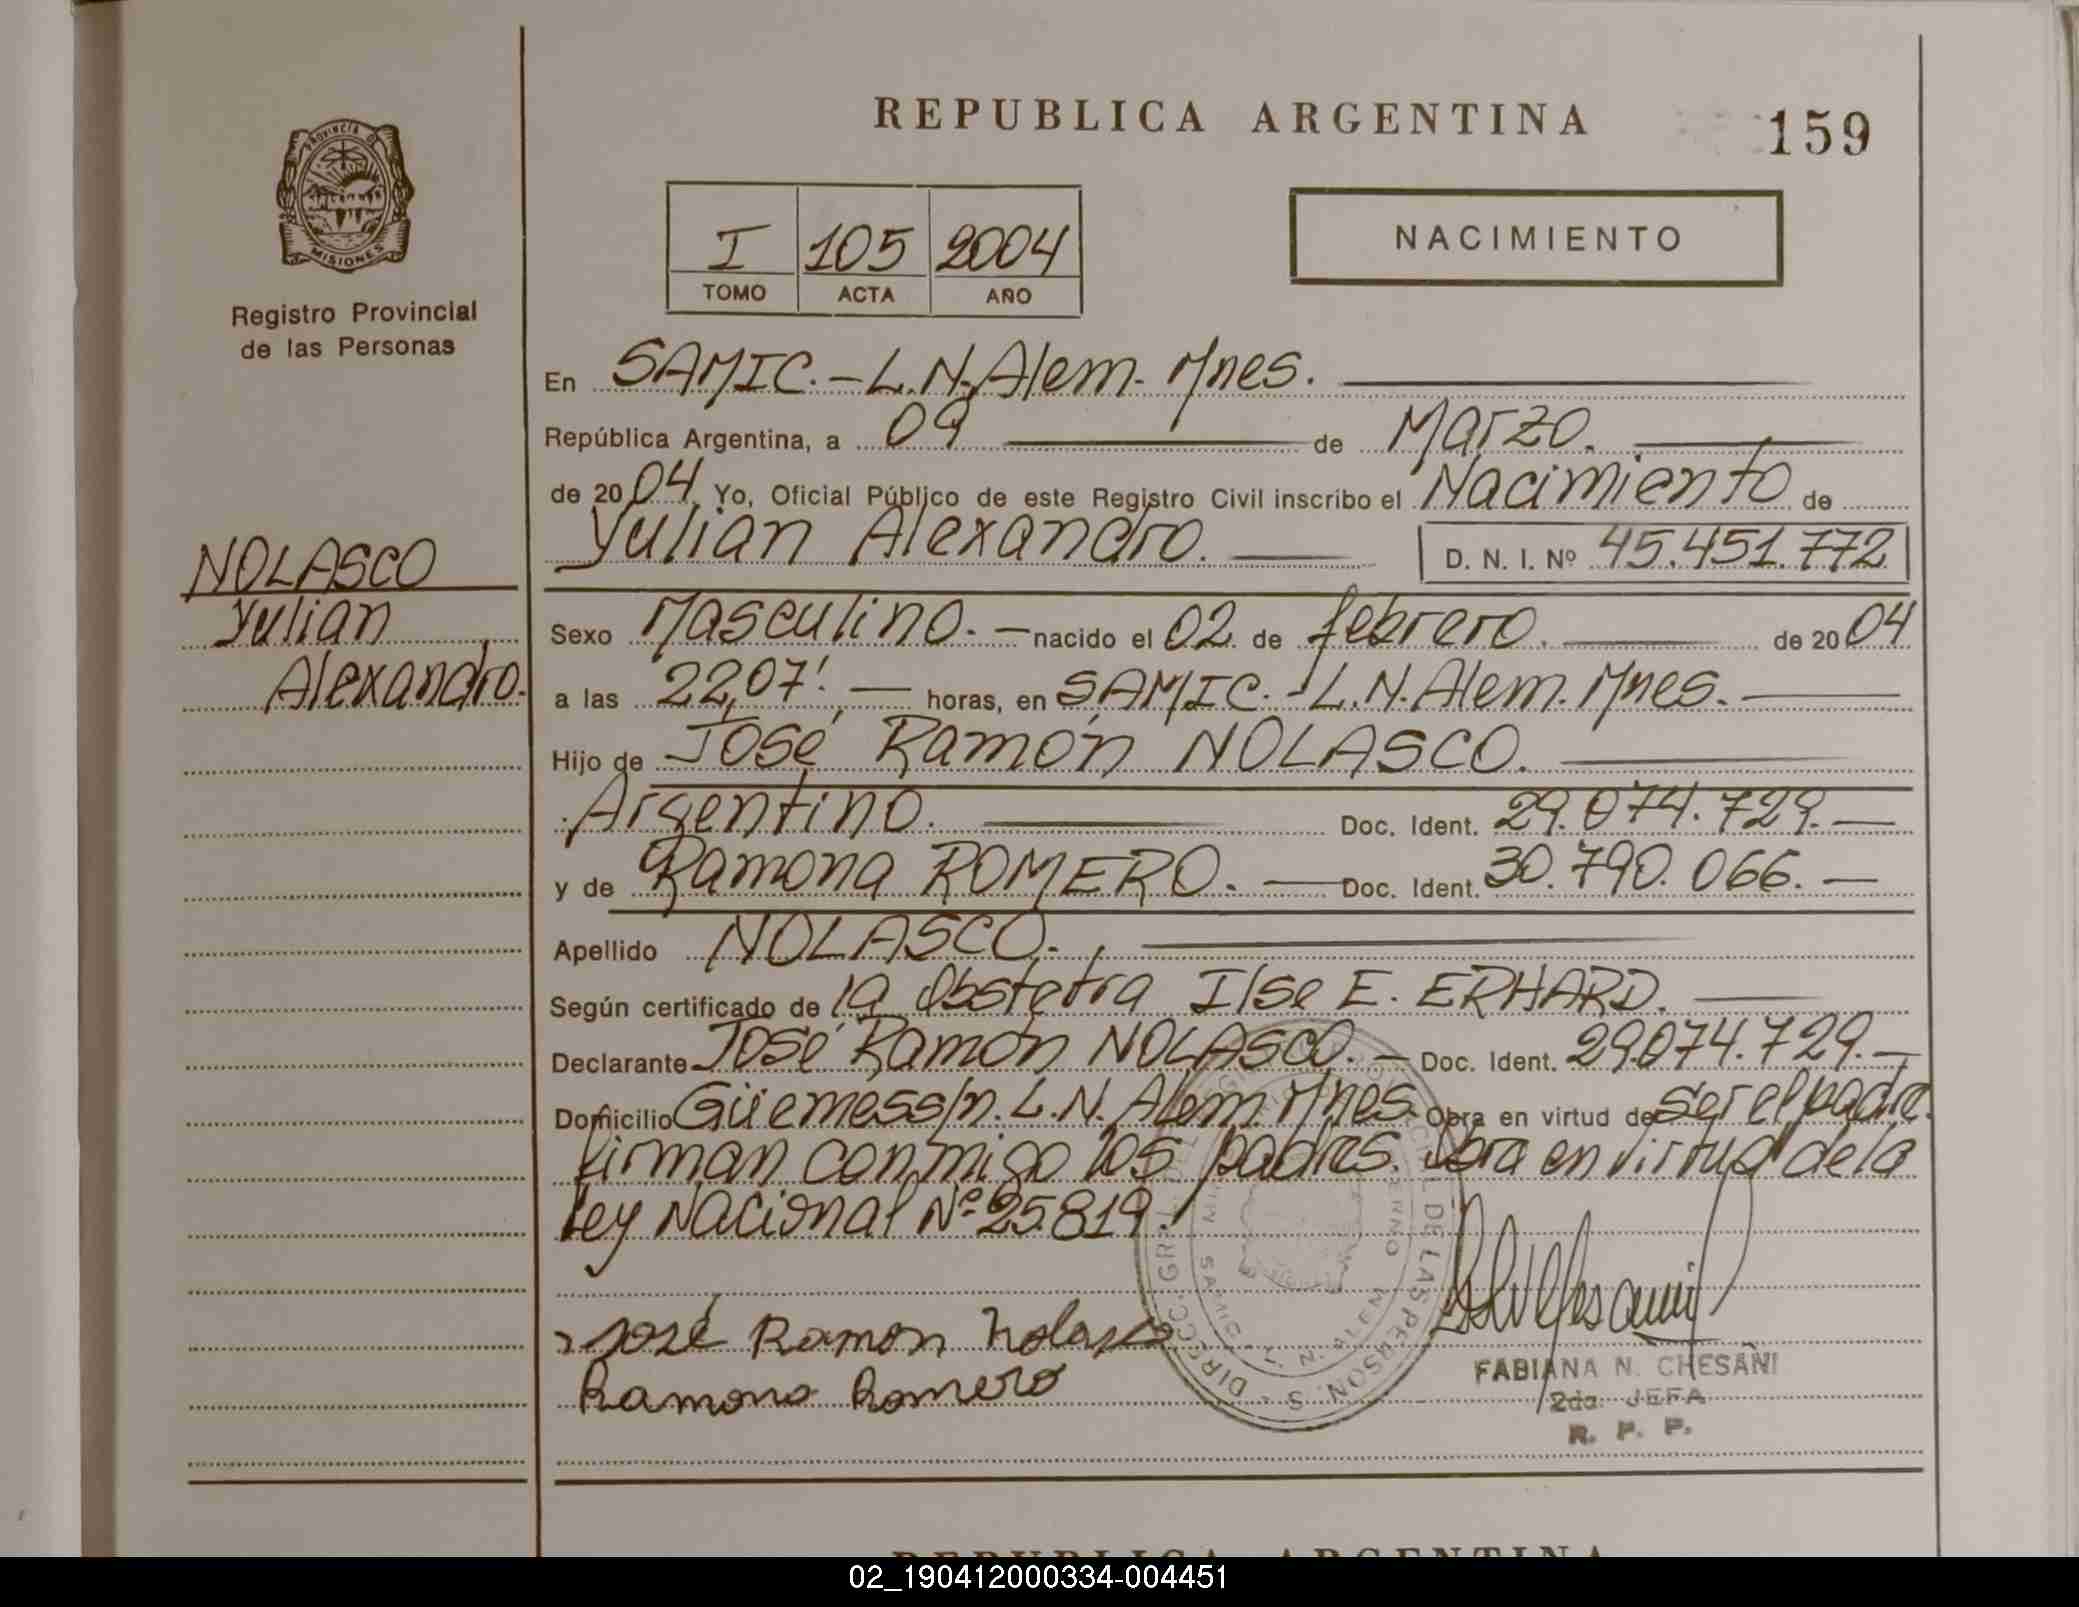 REPUBLICA ARGENTINA
159
PROVINCIA D
MISIONES
Registro Provincial
de las Personas
I 105 2004
TOMO ACTA AÑO
NACIMIENTO
En SAMIC.-L.N.Alem. Mnes.
República Argentina, a 09 de Marzo.
de 2004 Yo, Oficial Público de este Registro Civil inscribo el Nacimiento de
Yulian Alexandro. D. N. I. Nº 45.451.772
NOLASCO
Yulian
Alexandro.
Sexo Masculino. - nacido el 02 de febrero. de 2004
a las 22,07'. horas, en SAMIC.-L.N.Alem. Mnes.
Hijo de José Ramón NOLASCO.
Argentino. Doc. Ident. 29.074.729.
y de Ramona ROMERO. Doc. Ident. 30.790.066.
Apellido NOLASCO.
Según certificado de la Obstetra Ilse E. ERHARD.
Declarante José Ramón NOLASCO. - Doc. Ident. 29.074.729.
Domicilio Güemes s/n. L.N. Alem. Mnes. Obra en virtud de ser el padre.
firman conmigo los padres. Obra en virtud de la
ley Nacional Nº 25.819.
José Ramon Nolasco
Ramona Romero
FABIANA N. CHESANI
2da. JEFA
R. P. P.
REPUBLICA ARGENTINA
02_190412000334-004451